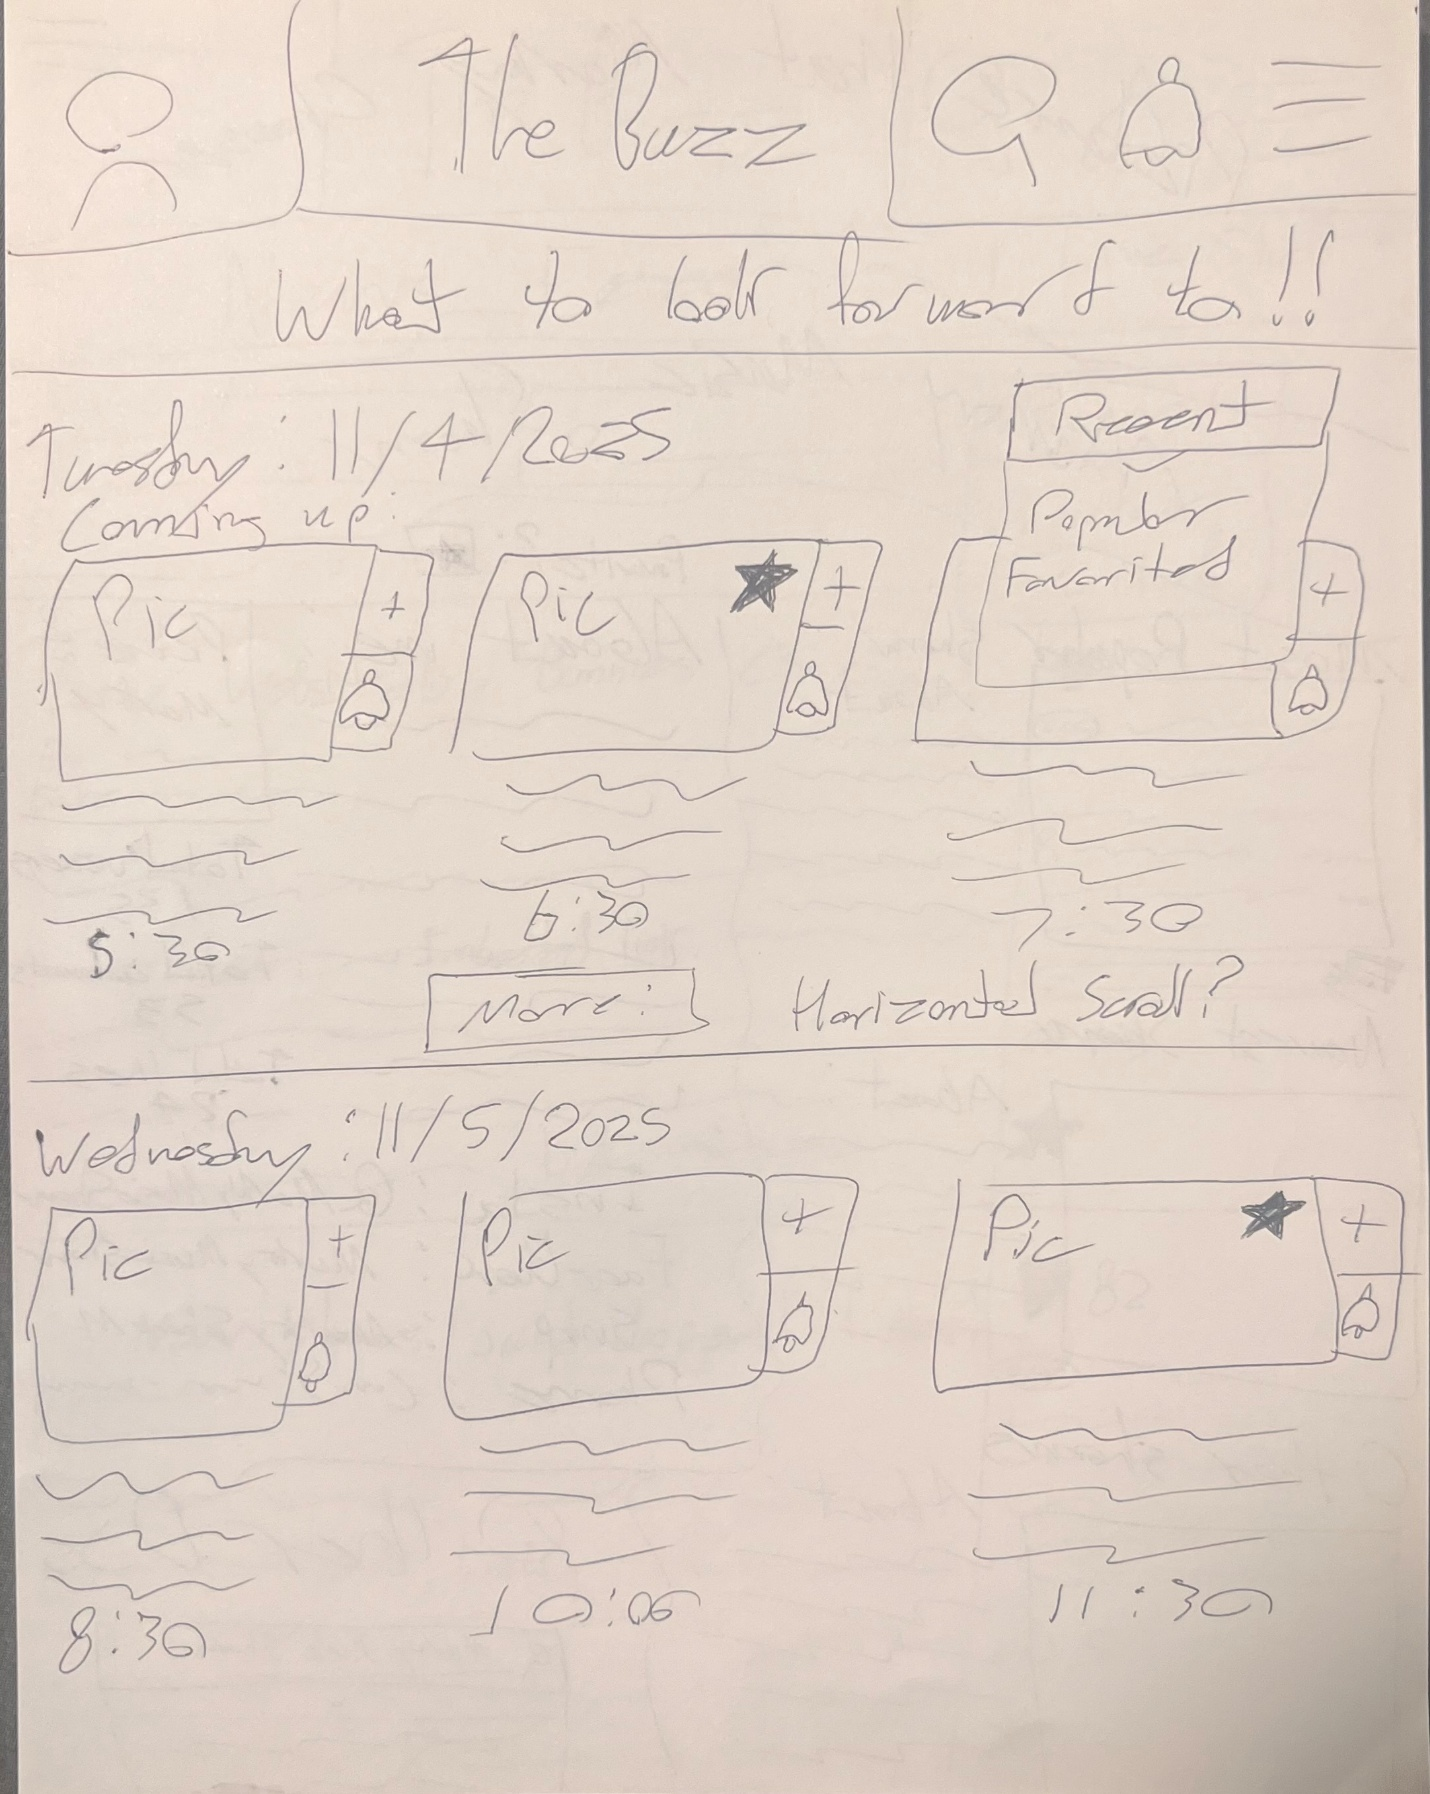 The Buzz
What to look forward to!!
Tuesday: 11/4/2025
Recent
Coming up:
Popular
Favorited
Pic +
Pic +
+
5:30
6:30
7:30
More:
Horizontal Scroll?
Wednesday: 11/5/2025
Pic +
Pic +
Pic +
8:30
10:00
11:30